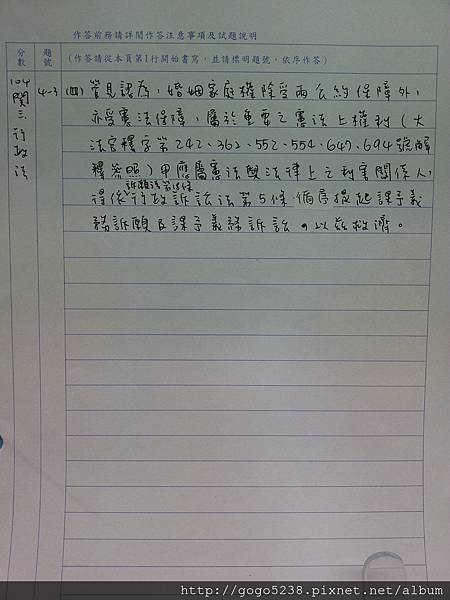 作答前務請詳閱作答注意事項及試題說明
分數
題號
(作答請從本頁第1行開始書寫,並請標明題號,依序作答)
104關三行政法
4-3
(四)管見認為,婚姻家庭權除受兩公約保障外,
亦受憲法保障,屬於重要之憲法上權利(大
法官釋字第242、362、552、554、647、694號解
釋參照)甲應屬憲法與法律上之利害關係人,
訴願法第18條
得依行政訴訟法第5條循序提起課予義
務訴願及課予義務訴訟,以茲救濟。
http://gogo5238.pixnet.net/album